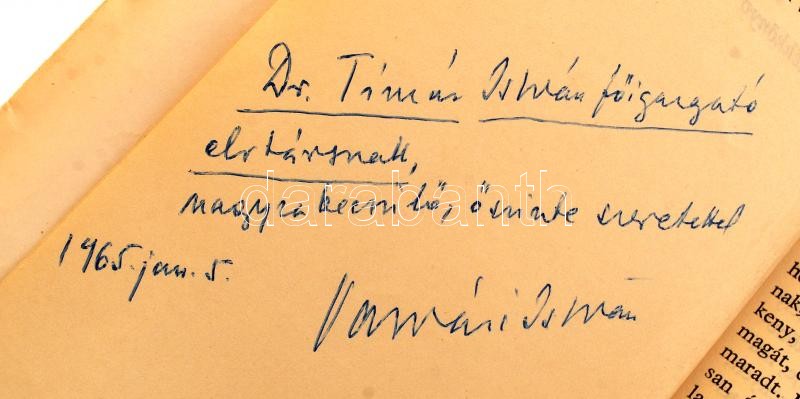 Dr. Tímár István főigazgató
elvtársnak,
nagyrabecsülő, őszinte szeretettel
1965. jan. 5.
Vasvári István
darabanth
nak,
keny,
magát,
maradt.
san